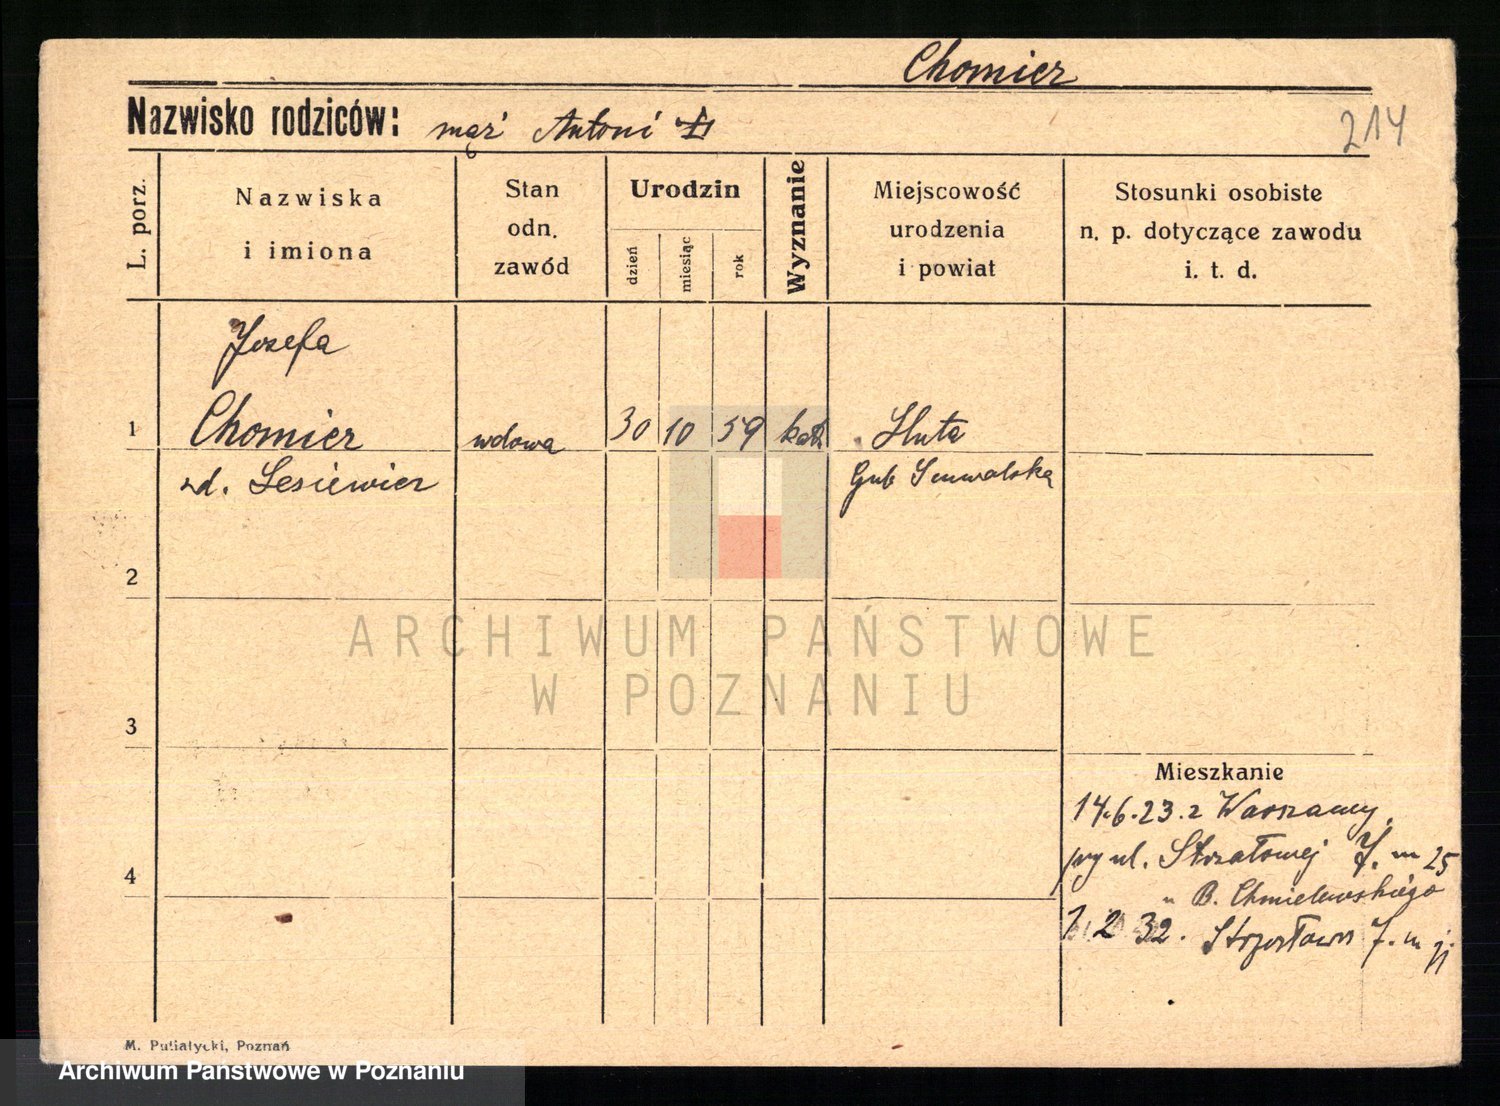 Chomicz
Nazwisko rodziców: mąż Antoni
214
L. porz.
Nazwiska
i imiona
Stan
odn.
zawód
Urodzin
dzień
miesiąc
rok
Wyznanie
Miejscowość
urodzenia
i powiat
Stosunki osobiste
n. p. dotyczące zawodu
i. t. d.
Józefa
1 Chomicz wdowa 30 10 59 kat. Huta
zd. Lesiewicz Gub Suwalska
2
3
Mieszkanie
14.6.23. z Warszawy
przy ul. Strzałowej 7. m 25
" B. Chmielewskiego
4
1.2 32. Strzałowa 7. m
M. Putiatycki, Poznań
ARCHIWUM PAŃSTWOWE
W POZNANIU
Archiwum Państwowe w Poznaniu